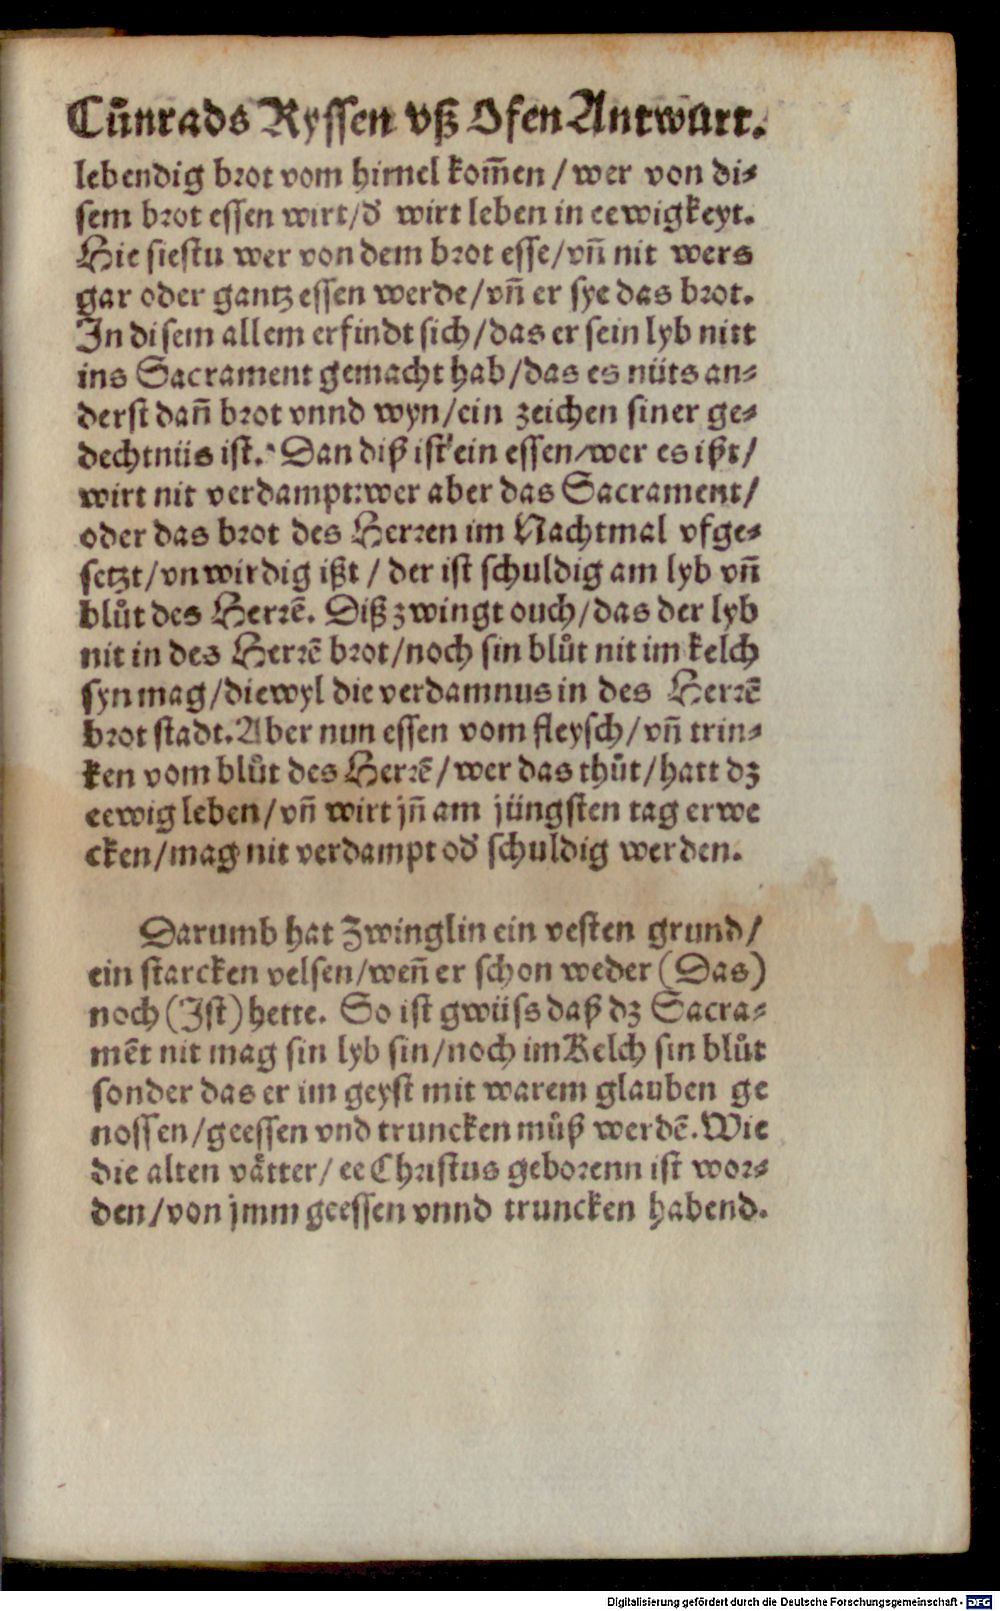 Cůnrads Ryssen vß Ofen Antwurt.
lebendig brot vom himel kom̃en / wer von di⸗
sem brot essen wirt/d̕ wirt leben in eewigkeyt.
Hie siestu wer von dem brot esse/vñ nit wers
gar oder gantz essen werde/vñ er sye das brot.
In disem allem erfindt sich/das er sein lyb nitt
ins Sacrament gemacht hab/das es nüts an⸗
derst dañ brot vnnd wyn/ein zeichen siner ge⸗
dechtnüs ist. Dan diß ist ein essen/wer es ißt/
wirt nit verdampt:wer aber das Sacrament/
oder das brot des Herren im Nachtmal vfge⸗
setzt/vnwirdig ißt / der ist schuldig am lyb vñ
blůt des Herrẽ. Diß zwingt ouch/das der lyb
nit in des Herrẽ brot/noch sin blůt nit im kelch
syn mag/diewyl die verdamnus in des Herrẽ
brot stadt. Aber nun essen vom fleysch/vñ trin⸗
ken vom blůt des Herrẽ/wer das thůt/hatt dz
eewig leben/vñ wirt jñ am jüngsten tag erwe
cken/mag nit verdampt od̕ schuldig werden.
Darumb hat Zwinglin ein vesten grund/
ein starcken velsen/weñ er schon weder (Das)
noch (Ist) hette. So ist gwüss daß dz Sacra⸗
mẽt nit mag sin lyb sin/noch im Kelch sin blůt
sonder das er im geyst mit warem glauben ge
nossen/geessen vnd truncken můß werdẽ. Wie
die alten våtter/ ee Christus geborenn ist wor⸗
den/von jmm geessen vnnd truncken habend.
Digitalisierung gefördert durch die Deutsche Forschungsgemeinschaft - DFG